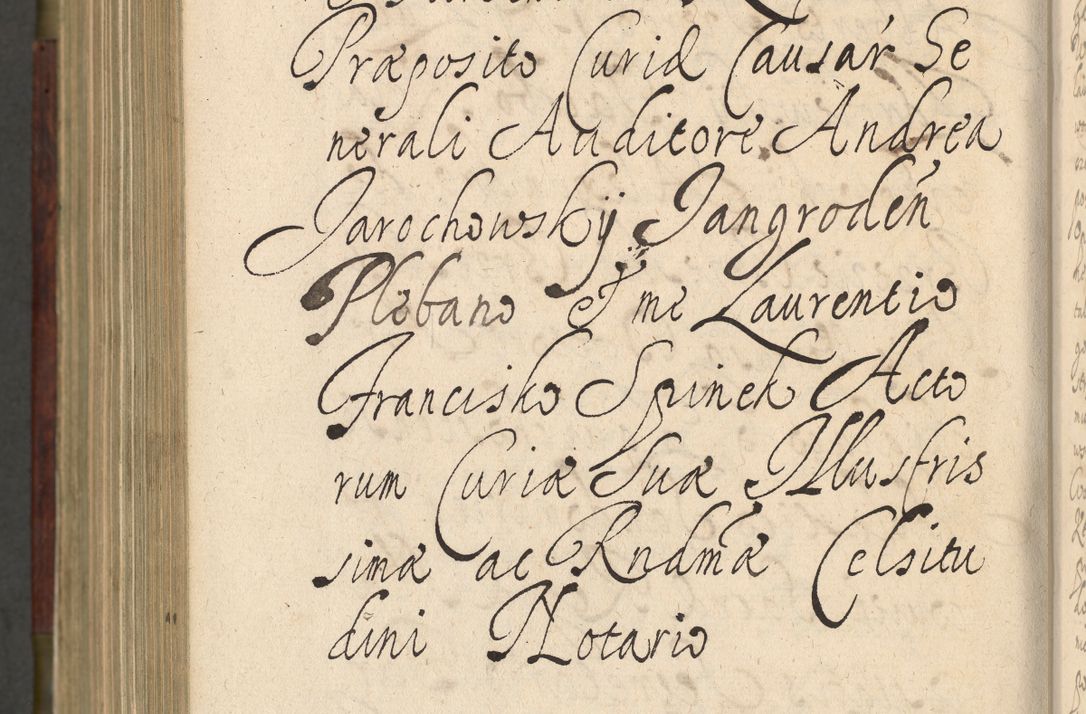 Præposito Curiæ Causar Ge
nerali Auditore Andrea
Jarochowskÿ Jangroden̄
Plebano et me Laurentio
Francisko Spinek Acto
rum Curiæ Suæ Illustris
simæ ac Rndmæ Celsitu
dini Notario